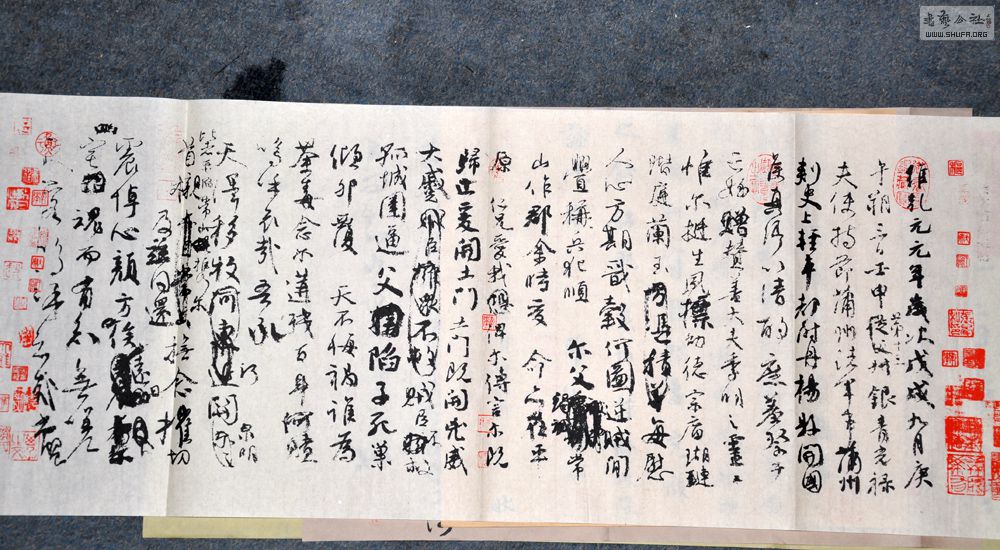 維乾元元年歲次戊戌九月庚
午朔三日壬申第十三叔銀青光祿
夫使持節蒲州諸軍事蒲州
刺史上輕車都尉丹楊縣開國
侯真卿以清酌庶羞祭于
亡姪贈贊善大夫季明之靈曰
惟爾挺生夙標幼德宗廟瑚璉
階庭蘭玉每慰
人心方期戩穀何圖逆賊間
釁稱兵犯順爾父竭誠常
山作郡余時受命亦在平
原仁兄愛我俾爾傳言爾既
歸止爰開土門土門既開凶威
大蹙賊臣不救
孤城圍逼父陷子死巢
傾卵覆天不悔禍誰為
荼毒念爾遘殘百身何贖
嗚呼哀哉吾承
天澤移牧河關泉明
比者再陷常山攜爾
首櫬及茲同還撫念摧切
震悼心顏方俟遠日
宅魂而有知無嗟
久客嗚呼哀哉尚饗
書藝公社
WWW.SHUFA.ORG